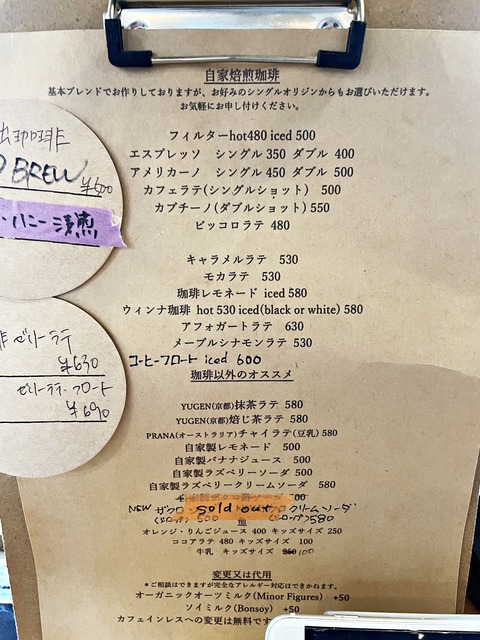 自家焙煎珈琲
基本ブレンドでお作りしておりますが、お好みのシングルオリジンからもお選びいただけます。
お気軽にお申し付けください。
出珈琲
BREW
¥600
ハニー 淺煎
フィルターhot480 iced 500
エスプレッソ シングル 350 ダブル 400
アメリカーノ シングル 450 ダブル 500
カフェラテ(シングルショット) 500
カプチーノ(ダブルショット) 550
ピッコロラテ 480
キャラメルラテ 530
モカラテ 530
珈琲レモネード iced 580
ウィンナ珈琲 hot 530 iced(black or white) 580
アフォガートラテ 630
メープルシナモンラテ 530
コーヒーフロート iced 600
ゼリーラテ
¥630
ゼリーラテフロート
¥690
珈琲以外のオススメ
YUGEN(京都)抹茶ラテ 580
YUGEN(京都)焙じ茶ラテ 580
PRANA(オーストラリア)チャイラテ(豆乳) 580
自家製レモネード 500
自家製バナナジュース 500
自家製ラズベリーソーダ 500
自家製ラズベリークリームソーダ 580
Sold out
NEW
クリームソーダ
500
580
他
オレンジ・りんごジュース 400 キッズサイズ 250
ココアラテ 480 キッズサイズ 100
牛乳 キッズサイズ 100
変更又は代用
*ご相談はできますが完全なアレルギー対応はできかねます。
オーガニックオーツミルク(Minor Figures) +50
ソイミルク(Bonsoy) +50
カフェインレスへの変更は無料です